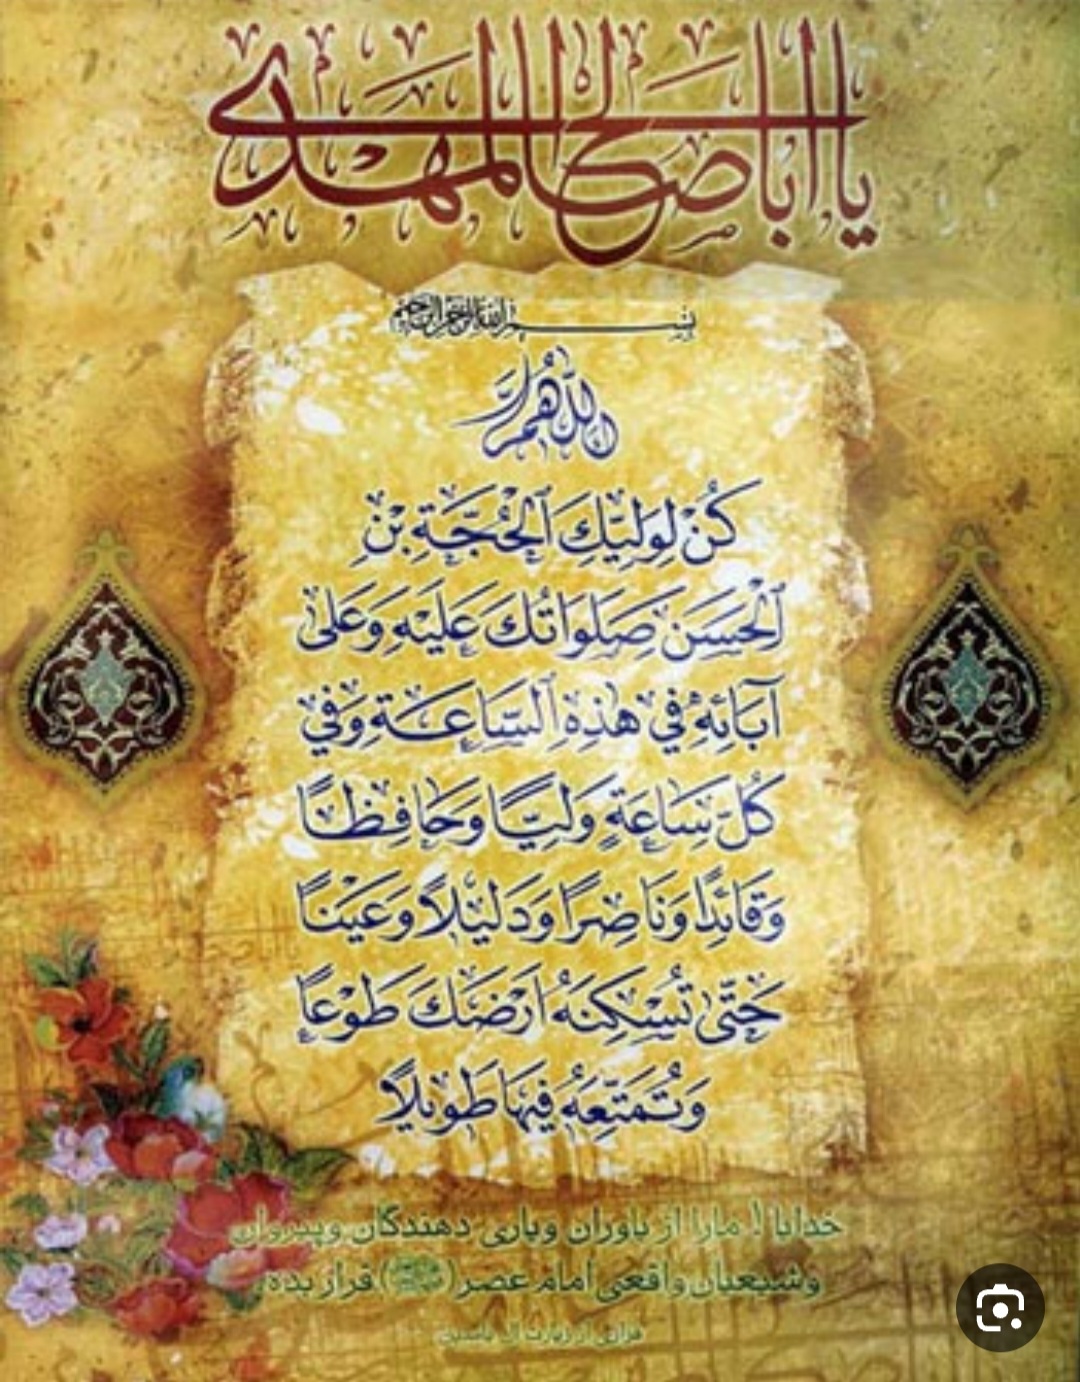 یا اباصالح المهدی
بسم الله الرحمن الرحیم
اللّٰهُمَّ
كُنْ لِوَلِيِّكَ ٱلْحُجَّةِ بْنِ
ٱلْحَسَنِ صَلَوَاتُكَ عَلَيْهِ وَعَلىٰ
آبَائِهِ فِي هٰذِهِ ٱلسَّاعَةِ وَفِي
كُلِّ سَاعَةٍ وَلِيًّا وَحَافِظًا
وَقَائِدًا وَنَاصِرًا وَدَلِيلًا وَعَيْنًا
حَتّىٰ تُسْكِنَهُ اَرْضَكَ طَوْعًا
وَتُمَتِّعَهُ فِيهَا طَوِيلًا
خدایا! مارا از یاوران ویاری دهندگان وپیروان
وشیعیان واقعی امام عصر () قرار بده
فرازی از زیارت آل یاسین